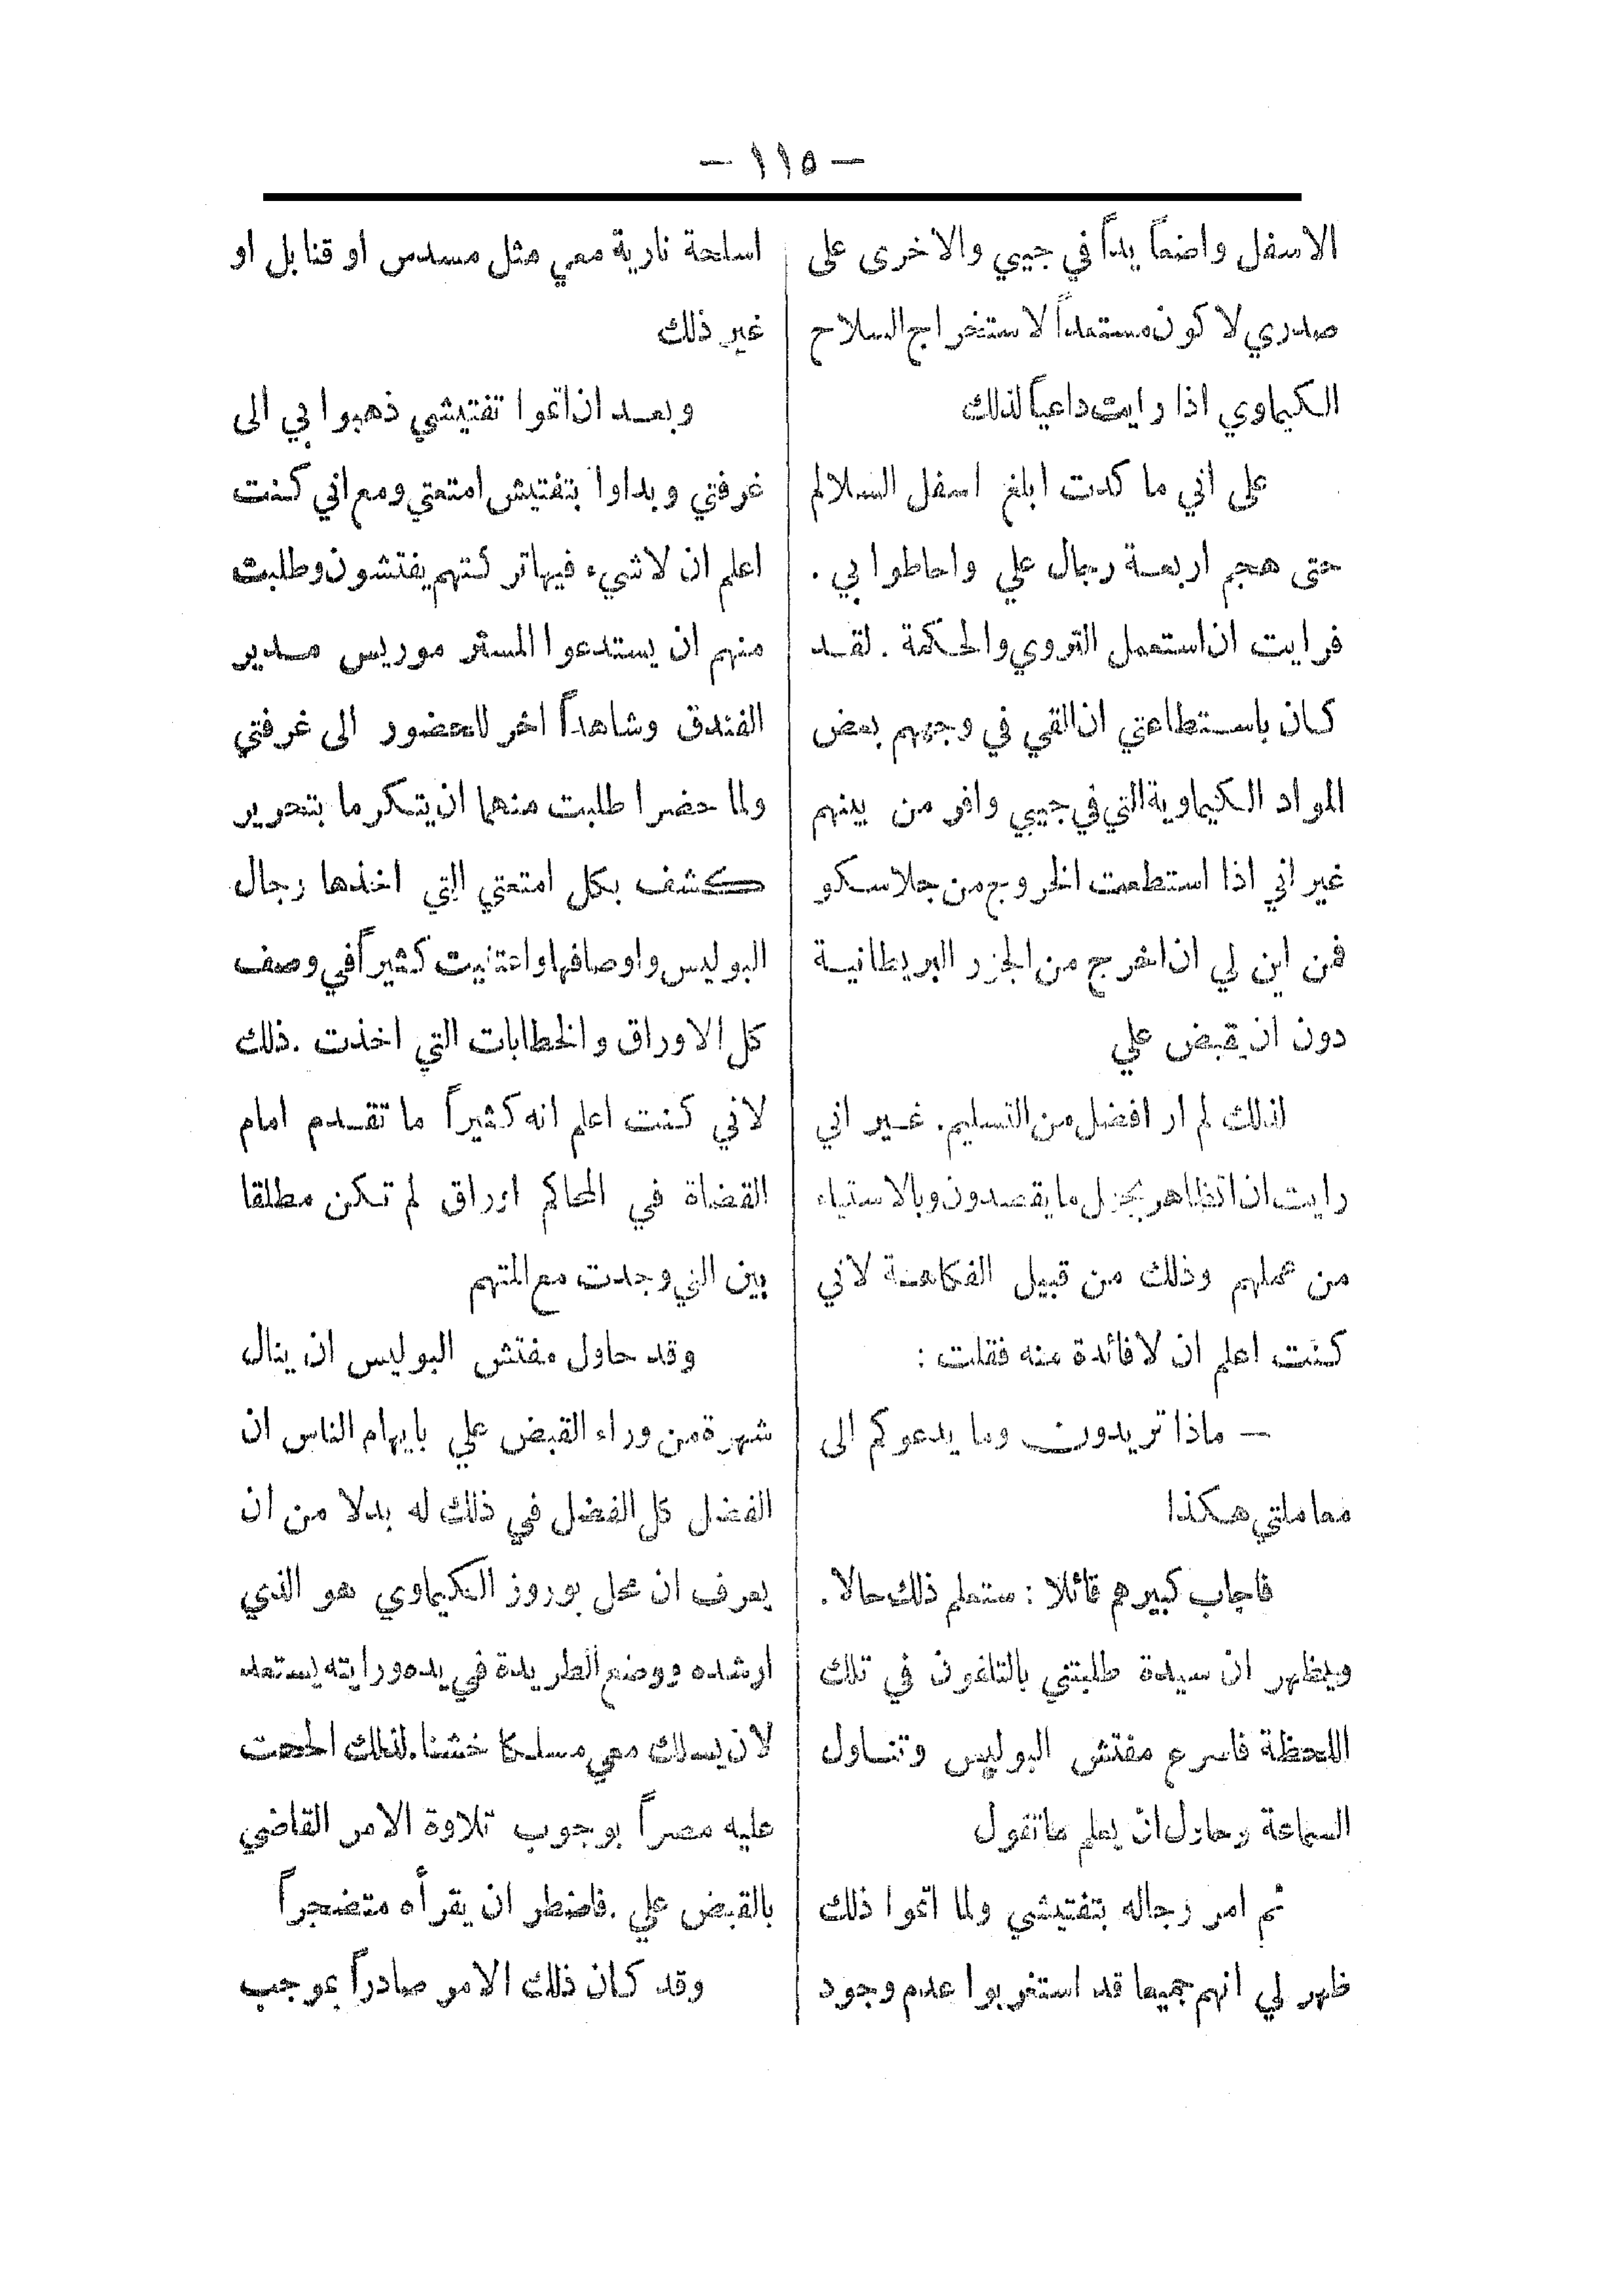 — ١١٥ —
الاسفل واضعاً يداً في جيبي والاخرى على
صدري لاكون مستعداً لاستخراج السلاح
الكيماوي اذا رايت داعياً لذلك
على اني ما كدت ابلغ اسفل السلالم
حتى هجم اربعة رجال علي واحاطوا بي .
فرايت ان استعمل التروي والحكمة . لقد
كان باستطاعتي ان القي في وجههم بعض
المواد الكيماوية التي في جيبي وافر من بينهم
غير اني اذا استطعت الخروج من جلاسكو
فمن اين لي ان اخرج من الجزر البريطانية
دون ان يقبض علي
لذلك لم ار افضل من التسليم . غير اني
رايت ان اتظاهر بجهل ما يقصدون وبالاستياء
من عملهم وذلك من قبيل الفكاهة لاني
كنت اعلم ان لا فائدة منه فقلت :
— ماذا تريدون وما يدعوكم الى
معاملتي هكذا
فاجاب كبيرهم قائلا : ستعلم ذلك حالا .
ويظهر ان سيدة طلبتني بالتلفون في تلك
اللحظة فاسرع مفتش البوليس وتناول
السماعة وحاول ان يعلم ما تقول
ثم امر رجاله بتفتيشي ولما اتموا ذلك
ظهر لي انهم جميعا قد استغربوا عدم وجود
اسلحة نارية معي مثل مسدس او قنابل او
غير ذلك
وبعد ان اتموا تفتيشي ذهبوا بي الى
غرفتي وبداوا بتفتيش امتعتي ومع اني كنت
اعلم ان لا شيء فيها تركتهم يفتشون وطلبت
منهم ان يستدعوا المستر موريس مدير
الفندق وشاهداً اخر للحضور الى غرفتي
ولما حضرا طلبت منهما ان يتكرما بتحرير
كشف بكل امتعتي التي اخذها رجال
البوليس واوصافها واعتنيت كثيراً في وصف
كل الاوراق والخطابات التي اخذت . ذلك
لاني كنت اعلم انه كثيراً ما تقدم امام
القضاة في المحاكم اوراق لم تكن مطلقا
بين التي وجدت مع المتهم
وقد حاول مفتش البوليس ان ينال
شهرة من وراء القبض علي بايهام الناس ان
الفضل كل الفضل في ذلك له بدلا من ان
يعرف ان محل بوروز الكيماوي هو الذي
ارشده ووضع الطريدة في يده ورايته يستعد
لان يسلك معي مسلكا خشنا . لذلك الححت
عليه مصراً بوجوب تلاوة الامر القاضي
بالقبض علي . فاضطر ان يقرأه متضجراً
وقد كان ذلك الامر صادراً بموجب